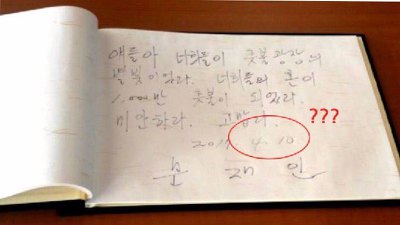 얘들아 너희들이 촛불광장의
별빛이었다. 너희들의 혼이
1,000만 촛불이 되었다.
미안하다. 고맙다.
2017 4. 10
문 재 인
???